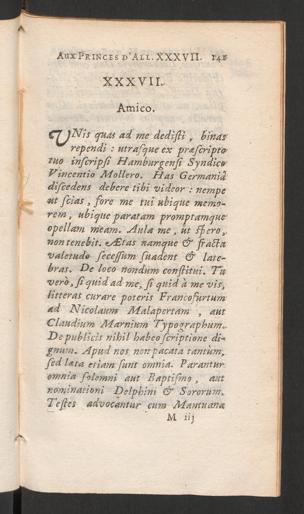 AUX PRINCES D'ALL. XXXVII. 141
XXXVII.
Amico.
VNis quas ad me dedisti, binas
rependi: utrasque ex præscripto
tuo inscripsi Hamburgensi Syndico
Vincentio Mollero. Has Germaniâ
discedens debere tibi videor: nempe
ut scias, fore me tui ubique memo-
rem, ubique paratam promptamque
opellam meam. Aula me, ut spero,
non tenebit. Ætas namque & fracta
valetudo secessum suadent & late-
bras. De loco nondum constitui. Tu
verò, si quid ad me, si quid à me vis,
litteras curare poteris Francofurtum
ad Nicolaum Malapertam, aut
Claudium Marnium Typographum.
De publicis nihil habeo scriptione di-
gnum. Apud nos non pacata tantum,
sed læta etiam sunt omnia. Parantur
omnia solemni aut Baptismo, aut
nominationi Delphini & Sororum.
Testes advocantur cum Mantuana
M iij